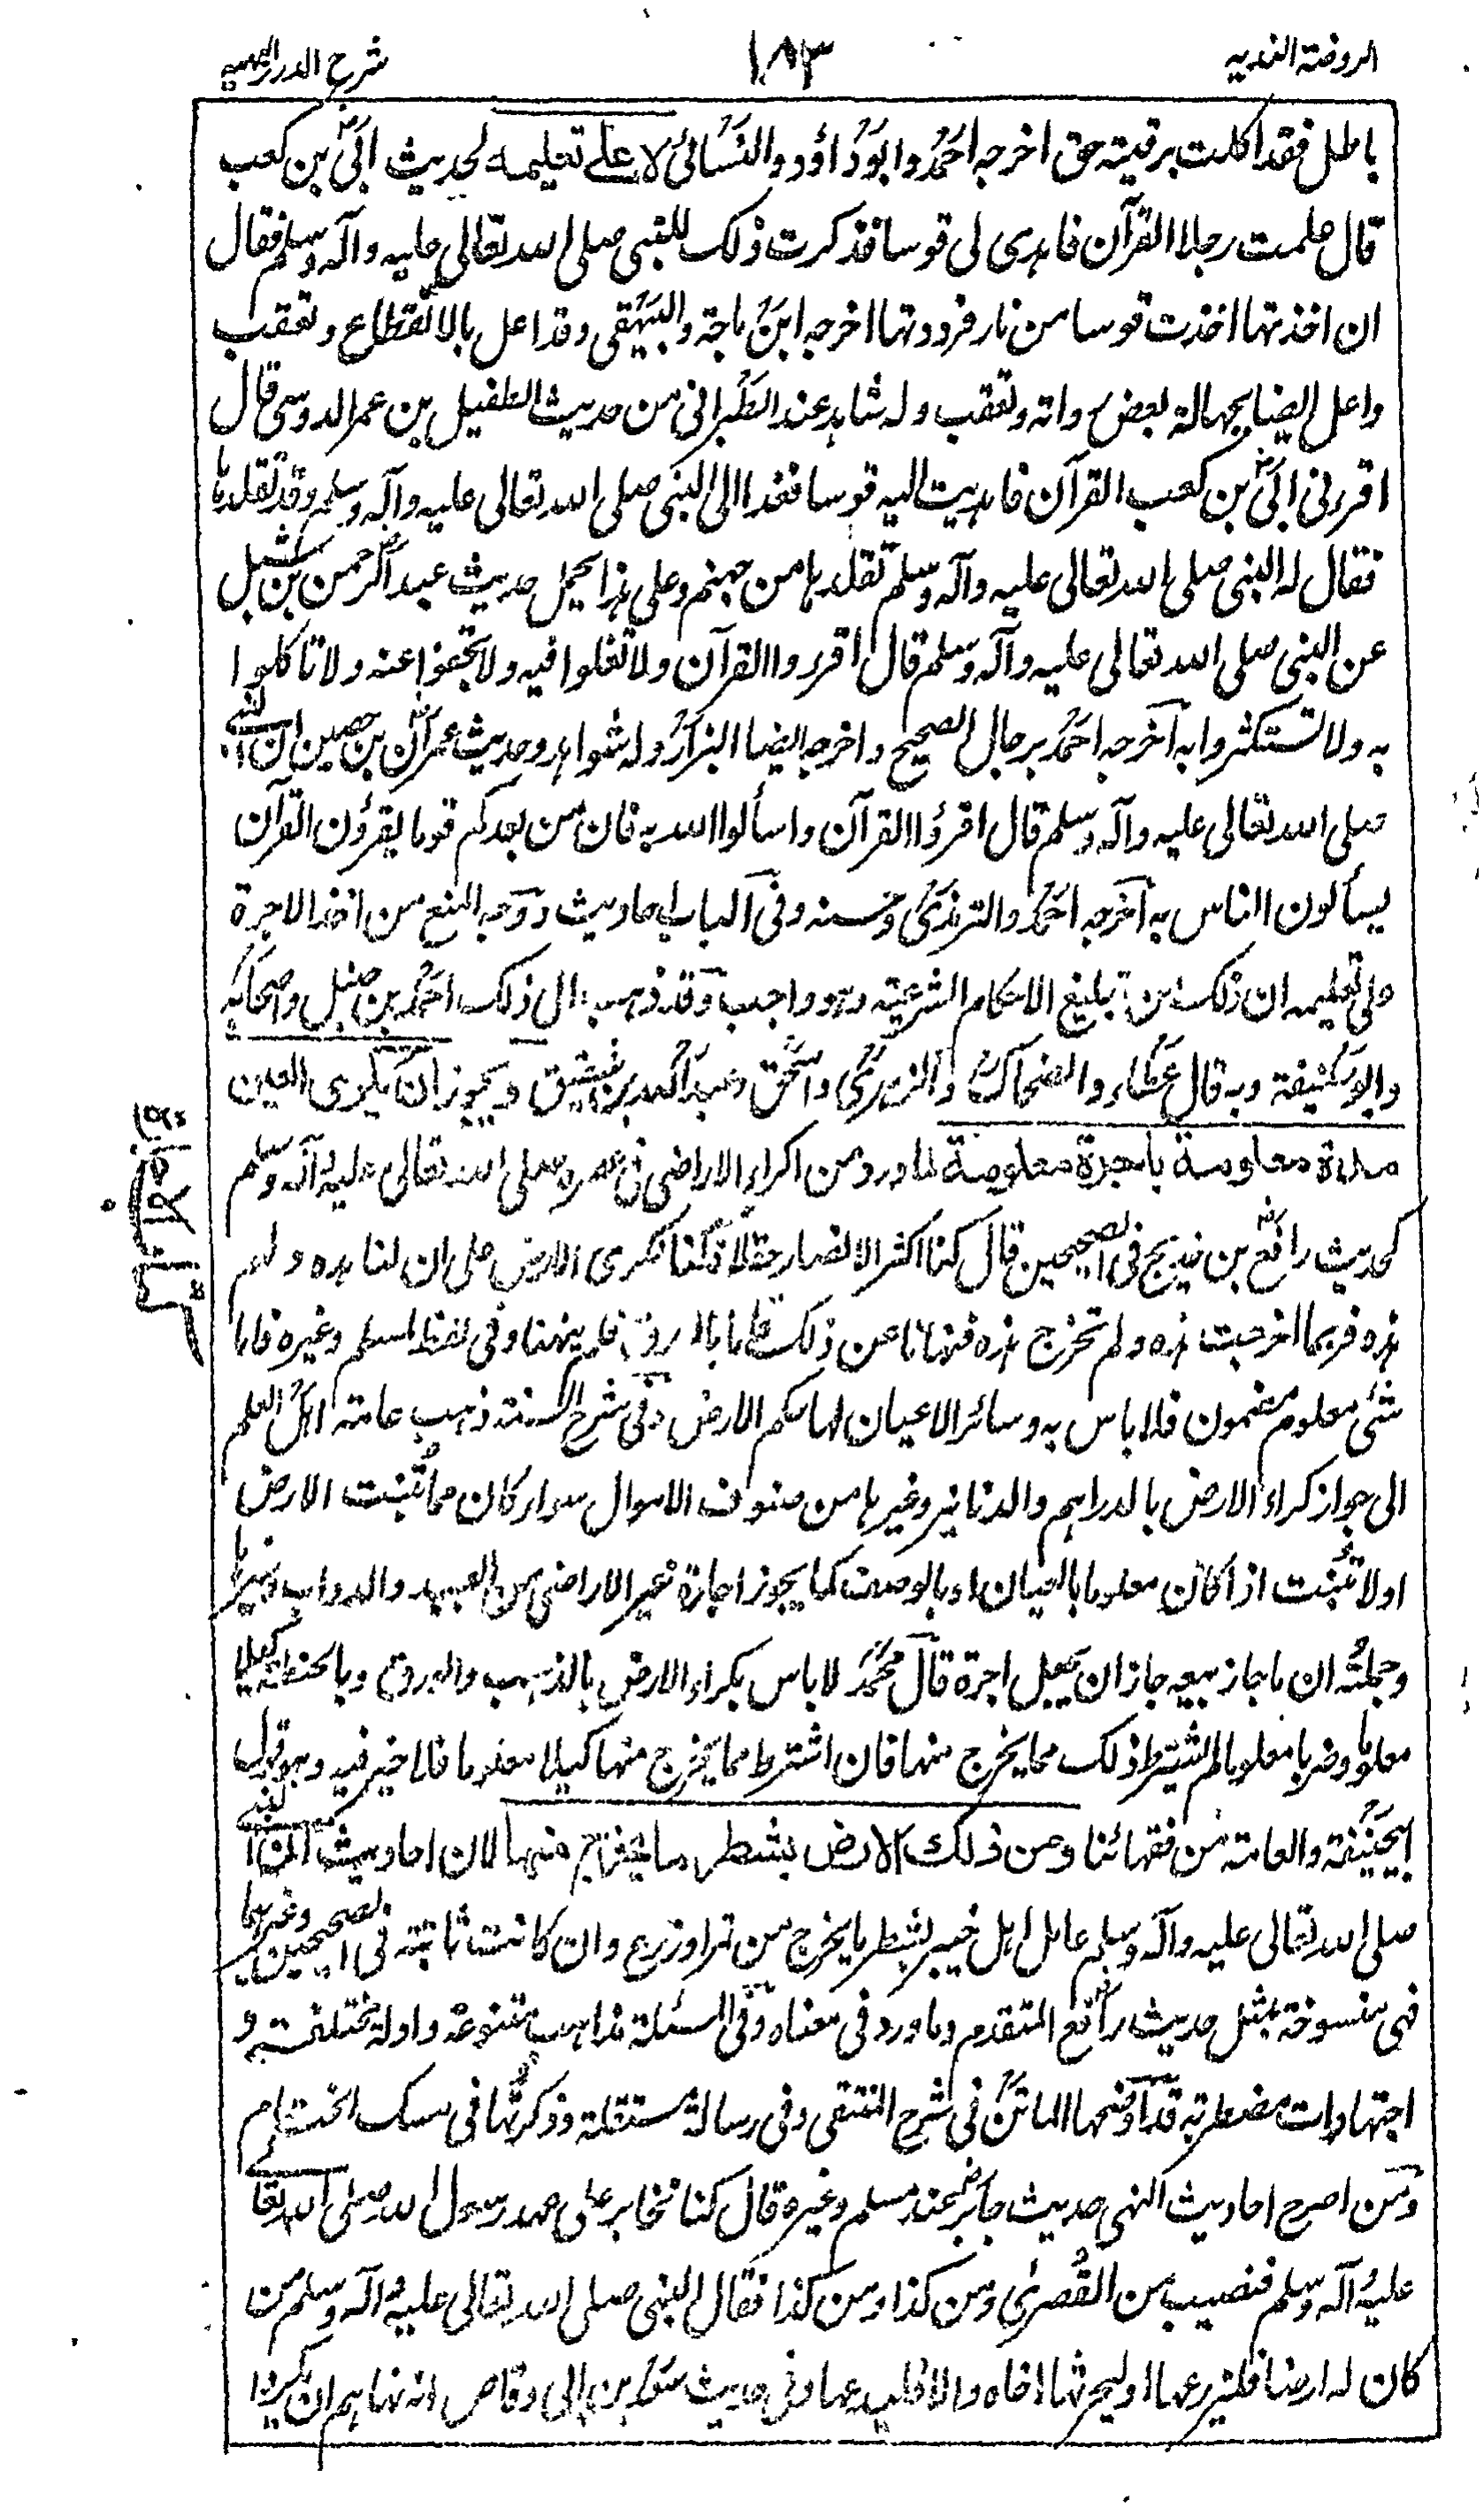 الروضة الندية
١٨٣
شرح الدرر البهية
باطل فقد اكلت برقية حق اخرجه احمد وابو داؤد والنسائى لا على تعليمه لحديث ابى بن كعب
قال علمت رجلا القرآن فاهدى لى قوسا فذكرت ذلك للنبى صلى الله تعالى عليه وآله وسلم فقال
ان اخذتها اخذت قوسا من نار فرددتها اخرجه ابن ماجة والبيهقى وقد اعل بالانقطاع وتعقب
واعل ايضا بجهالة بعض رواته وتعقب وله شاهد عند الطبرانى من حديث الطفيل بن عمر الدوسى قال
اقرءنى ابى بن كعب القرآن فاهديت اليه قوسا فغدا الى النبى صلى الله تعالى عليه وآله وسلم وقد تقلدها
فقال له النبى صلى الله تعالى عليه وآله وسلم تقلدها من جهنم وعلى هذا يحمل حديث عبد الرحمن بن شبل
عن النبى صلى الله تعالى عليه وآله وسلم قال اقرروا القرآن ولا تغلوا فيه ولا تجفوا عنه ولا تاكلوا
به ولا تستكثروا به اخرجه احمد برجال الصحيح واخرجه ايضا البزار وله شواهد وحديث عمران بن حصين ان النبى
صلى الله تعالى عليه وآله وسلم قال اقرؤا القرآن واسألوا الله به فان من بعدكم قوما يقرؤن القرآن
يسألون الناس به اخرجه احمد والترمذى وحسنه وفى الباب احاديث ووجه المنع من اخذ الاجرة
على تعليمه ان ذلك من تبليغ الاحكام الشرعية وهو واجب وقد ذهب الى ذلك احمد بن حنبل واصحابه
وابو حنيفة وبه قال عطاء والضحاك والزهرى واسحق وعبد الله بن شقيق ويجوز ان يكرى العين
مدة معلومة باجرة معلومة لما ورد من اكراء الاراضى فى عصره صلى الله تعالى عليه وآله وسلم
لحديث رافع بن خديج فى الصحيحين قال كنا اكثر الانصار حقلا فكنا نكرى الارض على ان لنا هذه ولهم
هذه فربما اخرجت هذه ولم تخرج هذه فنهانا عن ذلك فاما بالورق فلم ينهنا وفى لفظ لمسلم وغيره فاما
شئ معلوم مضمون فلا باس به وسائر الاعيان لها حكم الارض وفى شرح السنة ذهب عامة اهل العلم
الى جواز كراء الارض بالدراهم والدنانير وغيرها من صنوف الاموال سواء كان مما تنبت الارض
اولا تنبت اذا كان معلوما بالعيان او بالوصف كما يجوز اجارة غير الاراضى من العبيد والدواب وغيرها
وجملته ان ما جاز بيعه جاز ان يجعل اجرة قال محمد لا باس بكراء الارض بالذهب والورق وبالحنطة كيلا
معلوما وضربا معلوما ما لم يشترط ذلك مما يخرج منها فان اشترط مما يخرج منها كيلا معلوما فلا خير فيه وهو قول
ابيحنيفة والعامة من فقهائنا ومن ذلك الارض بشطر ما يخرج منها لان احاديث ان النبى
صلى الله تعالى عليه وآله وسلم عامل اهل خيبر بشطر ما يخرج من ثمر او زرع وان كانت ثابتة فى الصحيحين وغيرهما
فهى منسوخة بمثل حديث رافع المتقدم وما ورد فى معناه وفى المسئلة مذاهب متنوعة وادلة مختلفة و
اجتهادات مضطربة قد اوضحها الماتن فى شرح المنتقى وفى رسالة مستقلة وذكرتها فى مسك الختام
ومن اصرح احاديث النهى حديث جابر عند مسلم وغيره قال كنا نخابر على عهد رسول الله صلى الله تعا
عليه وآله وسلم فنصيب من القصرى ومن كذا ومن كذا فقال النبى صلى الله تعالى عليه وآله وسلم من
كان له ارضا فليزرعها او ليحرثها اخاه والا فليدعها وفى حديث سعد بن ابى وقاص انه نهاهم ان يكروا